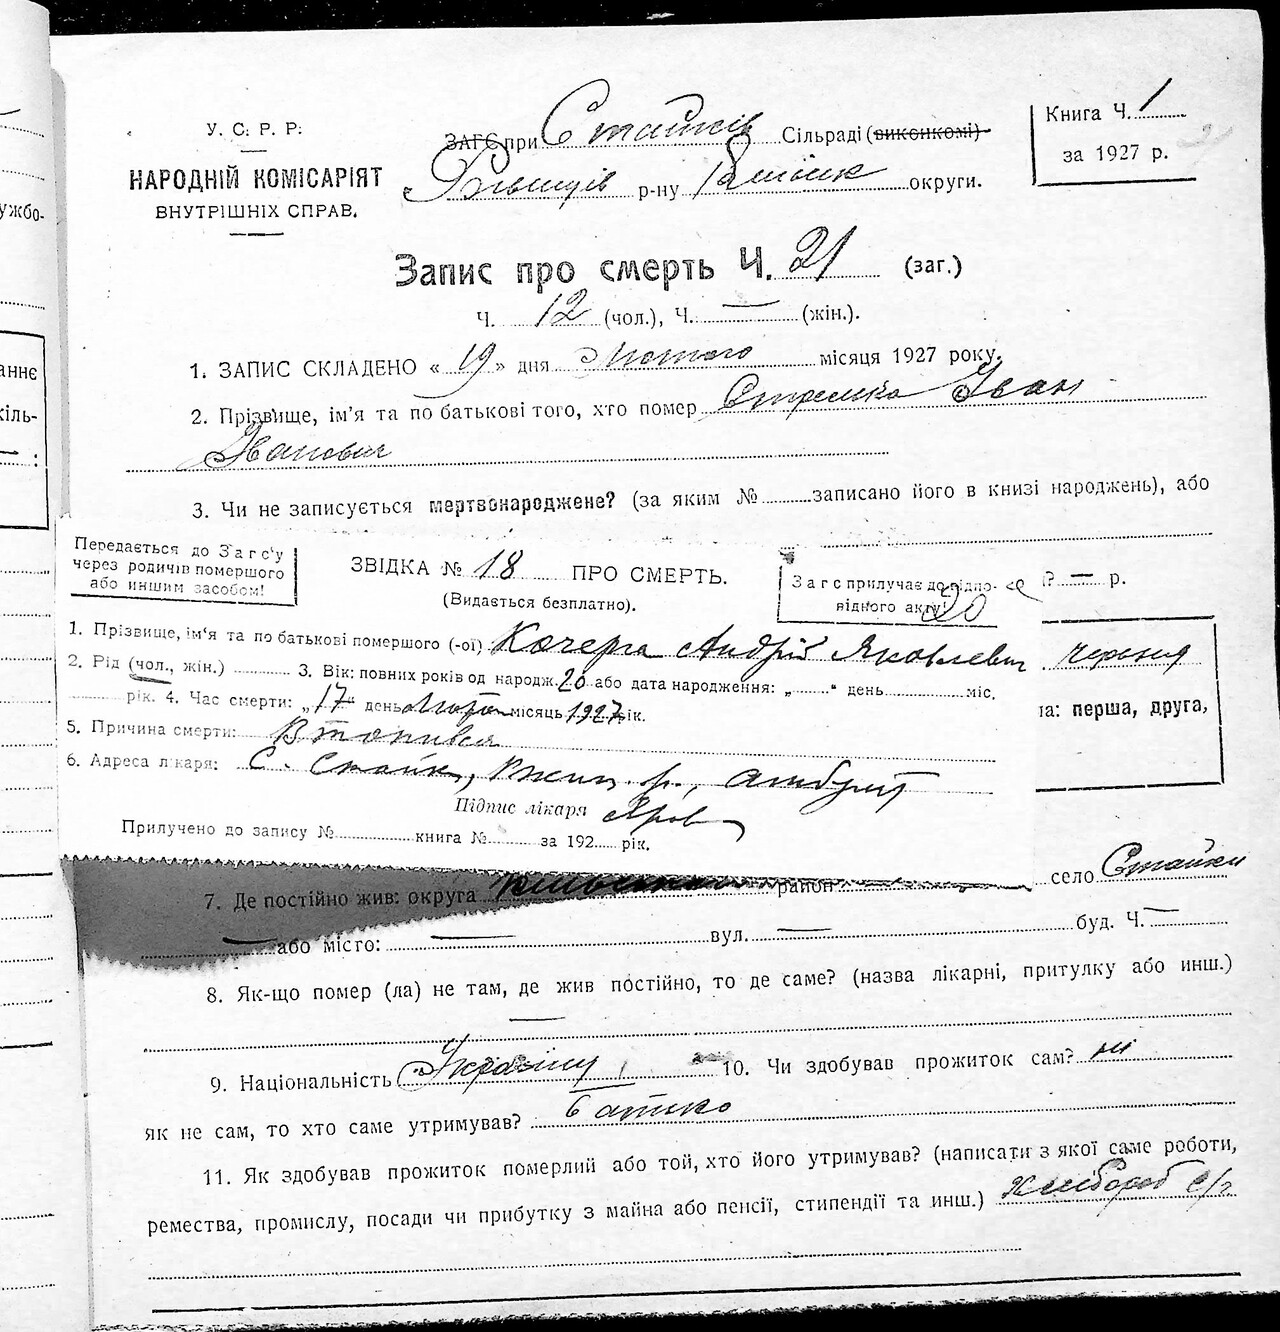 У. С. Р. Р.
НАРОДНІЙ КОМІСАРІЯТ
ВНУТРІШНІХ СПРАВ.
ЗАГС при Стайків Сільраді (виконкомі)
р-ну округи.
Книга Ч. 1
за 1927 р.
Запис про смерть Ч. 21 (заг.)
Ч. 12 (чол.), Ч. — (жін.).
1. ЗАПИС СКЛАДЕНО « 19 » дня Лютого місяця 1927 року.
2. Прізвище, ім'я та по батькові того, хто помер Стрелка Іван
Іванович
3. Чи не записується мертвонароджене? (за яким № записано його в книзі народжень), або
Передається до Загс'у
через родичів помершого
або иншим засобом!
ЗВІДКА № 18 ПРО СМЕРТЬ.
(Видається безплатно).
Загс прилучає до відпо-
відного акту!
20
? — р.
1. Прізвище, ім'я та по батькові помершого (-ої) Кочерга Андрій Яковлевич
2. Рід (чол., жін.) 3. Вік: повних років од народж. 20 або дата народження: „ " день міс.
рік. 4. Час смерти: „17" день Лютого місяць 1927 рік.
5. Причина смерти: Втопився
6. Адреса лікаря: С. Стайки,
Підпис лікаря
Прилучено до запису № книга № за 192 рік.
на: перша, друга,
7. Де постійно жив: округа район село Стайки
— або місто: — вул. — буд. Ч. —
8. Як-що помер (ла) не там, де жив постійно, то де саме? (назва лікарні, притулку або инш.)
—
9. Національність 10. Чи здобував прожиток сам? ні
як не сам, то хто саме утримував? батько
11. Як здобував прожиток померлий або той, хто його утримував? (написати з якої саме роботи,
ремества, промислу, посади чи прибутку з майна або пенсії, стипендії та инш.) хлібороб с/г
ужбо-
анне
кіль-
— :